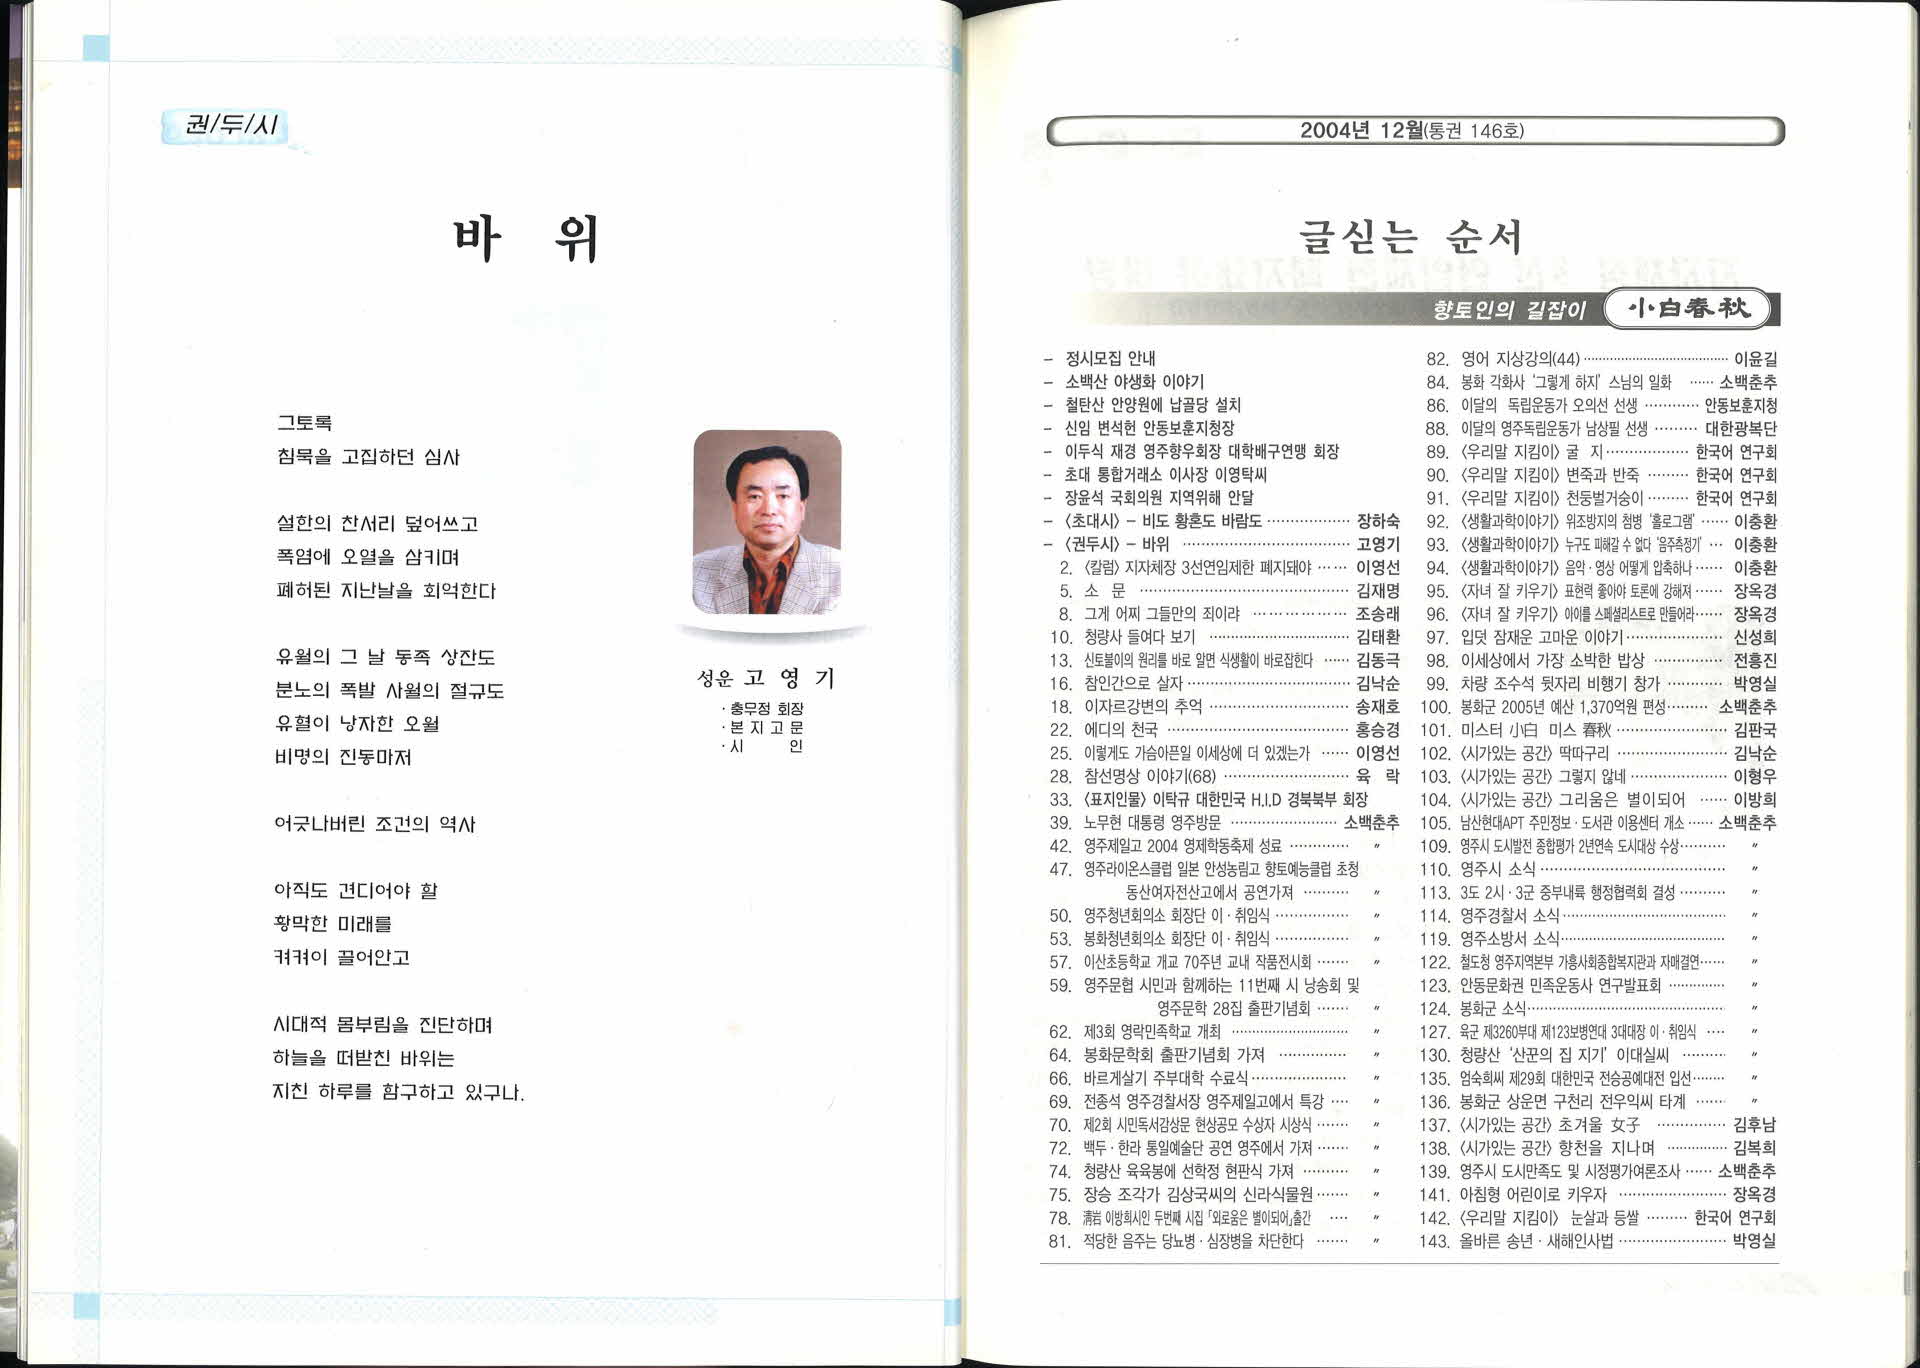 권/두/시
바 위
그토록
침묵을 고집하던 심사
설한의 찬서리 덮어쓰고
폭염에 오열을 삼키며
폐허된 지난날을 회억한다
유월의 그 날 동족 상잔도
분노의 폭발 사월의 절규도
유혈이 낭자한 오월
비명의 진동마저
어긋나버린 조건의 역사
아직도 견디어야 할
황막한 미래를
켜켜이 끌어안고
시대적 몸부림을 진단하며
하늘을 떠받친 바위는
지친 하루를 함구하고 있구나.
성운 고 영 기
· 충무정 회장
· 본 지 고 문
· 시 인
2004년 12월(통권 146호)
글싣는 순서
향토인의 길잡이 小白春秋
- 정시모집 안내
- 소백산 야생화 이야기
- 철탄산 안양원에 납골당 설치
- 신임 변석헌 안동보훈지청장
- 이두식 재경 영주향우회장 대학배구연맹 회장
- 초대 통합거래소 이사장 이영탁씨
- 장윤석 국회의원 지역위해 안달
- 〈초대시〉 - 비도 황혼도 바람도 ················ 장하숙
- 〈권두시〉 - 바위 ································ 고영기
2. 〈칼럼〉 지자체장 3선연임제한 폐지돼야 ······ 이영선
5. 소 문 ········································ 김재명
8. 그게 어찌 그들만의 죄이랴 ·················· 조송래
10. 청량사 들여다 보기 ··························· 김태환
13. 신토불이의 원리를 바로 알면 식생활이 바로잡힌다 ······ 김동극
16. 참인간으로 살자 ······························· 김낙순
18. 이자르강변의 추억 ··························· 송재호
22. 에디의 천국 ··································· 홍승경
25. 이렇게도 가슴아픈일 이세상에 더 있겠는가 ······ 이영선
28. 참선명상 이야기(68) ························ 육 락
33. 〈표지인물〉 이탁규 대한민국 H.I.D 경북북부 회장
39. 노무현 대통령 영주방문 ······················ 소백춘추
42. 영주제일고 2004 영제학동축제 성료 ············ 〃
47. 영주라이온스클럽 일본 안성농림고 향토예능클럽 초청
동산여자전산고에서 공연가져 ·········· 〃
50. 영주청년회의소 회장단 이·취임식 ··············· 〃
53. 봉화청년회의소 회장단 이·취임식 ··············· 〃
57. 이산초등학교 개교 70주년 교내 작품전시회 ······· 〃
59. 영주문협 시민과 함께하는 11번째 시 낭송회 및
영주문학 28집 출판기념회 ······· 〃
62. 제3회 영락민족학교 개최 ························ 〃
64. 봉화문학회 출판기념회 가져 ··············· 〃
66. 바르게살기 주부대학 수료식 ···················· 〃
69. 전종석 영주경찰서장 영주제일고에서 특강 ···· 〃
70. 제2회 시민독서감상문 현상공모 수상자 시상식 ······· 〃
72. 백두·한라 통일예술단 공연 영주에서 가져 ······· 〃
74. 청량산 육육봉에 선학정 현판식 가져 ·········· 〃
75. 장승 조각가 김상국씨의 신라식물원 ······· 〃
78. 淸岩 이방희시인 두번째 시집 「외로움은 별이되어」출간 ···· 〃
81. 적당한 음주는 당뇨병·심장병을 차단한다 ······· 〃
82. 영어 지상강의(44) ······························ 이윤길
84. 봉화 각화사 '그렇게 하지' 스님의 일화 ······ 소백춘추
86. 이달의 독립운동가 오의선 선생 ··········· 안동보훈지청
88. 이달의 영주독립운동가 남상필 선생 ········· 대한광복단
89. 〈우리말 지킴이〉 굴 지 ················· 한국어 연구회
90. 〈우리말 지킴이〉 변죽과 반죽 ········· 한국어 연구회
91. 〈우리말 지킴이〉 천둥벌거숭이 ········· 한국어 연구회
92. 〈생활과학이야기〉 위조방지의 첨병 '홀로그램' ······ 이충환
93. 〈생활과학이야기〉 누구도 피해갈 수 없다 '음주측정기' ··· 이충환
94. 〈생활과학이야기〉 음악·영상 어떻게 압축하나 ······ 이충환
95. 〈자녀 잘 키우기〉 표현력 좋아야 토론에 강해져 ······ 장옥경
96. 〈자녀 잘 키우기〉 아이를 스페셜리스트로 만들어라 ······ 장옥경
97. 입덧 잠재운 고마운 이야기 ···················· 신성희
98. 이세상에서 가장 소박한 밥상 ·············· 전흥진
99. 차량 조수석 뒷자리 비행기 창가 ··········· 박영실
100. 봉화군 2005년 예산 1,370억원 편성 ········· 소백춘추
101. 미스터 小白 미스 春秋 ······················· 김판국
102. 〈시가있는 공간〉 딱따구리 ···················· 김낙순
103. 〈시가있는 공간〉 그렇지 않네 ···················· 이형우
104. 〈시가있는 공간〉 그리움은 별이되어 ······ 이방희
105. 남산현대APT 주민정보·도서관 이용센터 개소 ······ 소백춘추
109. 영주시 도시발전 종합평가 2년연속 도시대상 수상 ·········· 〃
110. 영주시 소식 ······································· 〃
113. 3도 2시·3군 중부내륙 행정협력회 결성 ·········· 〃
114. 영주경찰서 소식 ·································· 〃
119. 영주소방서 소식 ·································· 〃
122. 철도청 영주지역본부 가흥사회종합복지관과 자매결연 ······ 〃
123. 안동문화권 민족운동사 연구발표회 ············· 〃
124. 봉화군 소식 ········································ 〃
127. 육군 제3260부대 제123보병연대 3대대장 이·취임식 ···· 〃
130. 청량산 '산꾼의 집 지기' 이대실씨 ·········· 〃
135. 엄숙희씨 제29회 대한민국 전승공예대전 입선 ······· 〃
136. 봉화군 상운면 구천리 전우익씨 타계 ······· 〃
137. 〈시가있는 공간〉 초겨울 女子 ··············· 김후남
138. 〈시가있는 공간〉 향천을 지나며 ············· 김복희
139. 영주시 도시만족도 및 시정평가여론조사 ······ 소백춘추
141. 아침형 어린이로 키우자 ······················ 장옥경
142. 〈우리말 지킴이〉 눈살과 등쌀 ········· 한국어 연구회
143. 올바른 송년·새해인사법 ······················ 박영실